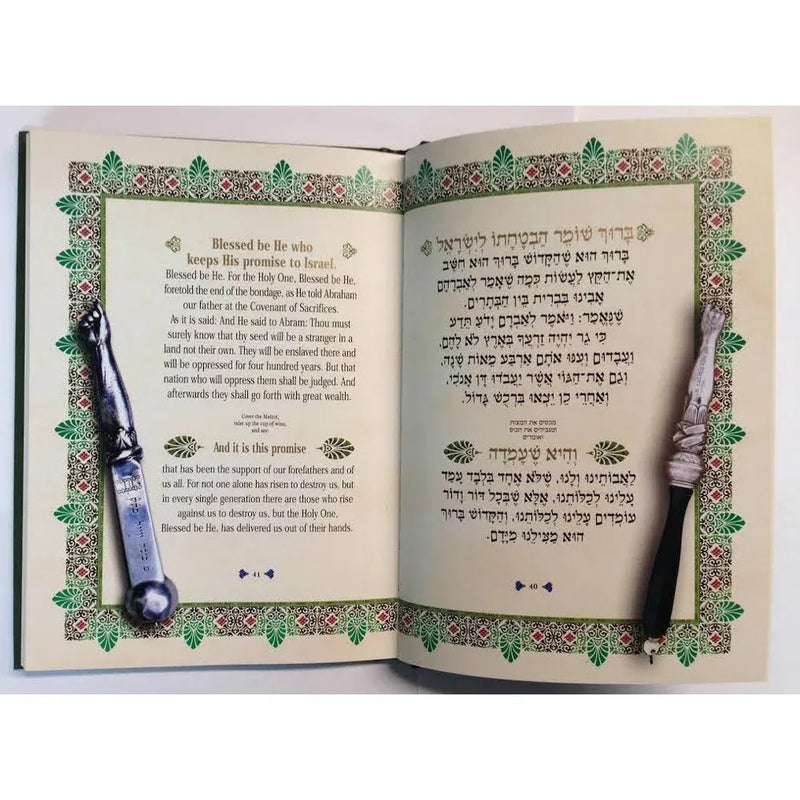 בָּרוּךְ שׁוֹמֵר הַבְטָחָתוֹ לְיִשְׂרָאֵל
בָּרוּךְ הוּא שֶׁהַקָּדוֹשׁ בָּרוּךְ הוּא חִשַּׁב
אֶת־הַקֵּץ לַעֲשׂוֹת כְּמָה שֶׁאָמַר לְאַבְרָהָם
אָבִינוּ בִּבְרִית בֵּין הַבְּתָרִים.
שֶׁנֶּאֱמַר: וַיֹּאמֶר לְאַבְרָם יָדֹעַ תֵּדַע
כִּי גֵר יִהְיֶה זַרְעֲךָ בְּאֶרֶץ לֹא לָהֶם,
וַעֲבָדוּם וְעִנּוּ אֹתָם אַרְבַּע מֵאוֹת שָׁנָה,
וְגַם אֶת־הַגּוֹי אֲשֶׁר יַעֲבֹדוּ דָּן אָנֹכִי,
וְאַחֲרֵי כֵן יֵצְאוּ בִּרְכֻשׁ גָּדוֹל.
מכסים את המצות
ומגביהים את הכוס
ואומרים
וְהִיא שֶׁעָמְדָה
לַאֲבוֹתֵינוּ וְלָנוּ, שֶׁלֹּא אֶחָד בִּלְבָד עָמַד
עָלֵינוּ לְכַלּוֹתֵנוּ, אֶלָּא שֶׁבְּכָל דּוֹר וָדוֹר
עוֹמְדִים עָלֵינוּ לְכַלּוֹתֵנוּ, וְהַקָּדוֹשׁ בָּרוּךְ
הוּא מַצִּילֵנוּ מִיָּדָם.
40
Blessed be He who
keeps His promise to Israel.
Blessed be He. For the Holy One, Blessed be He,
foretold the end of the bondage, as He told Abraham
our father at the Covenant of Sacrifices.
As it is said: And He said to Abram: Thou must
surely know that thy seed will be a stranger in a
land not their own. They will be enslaved there and
will be oppressed for four hundred years. But that
nation who will oppress them shall be judged. And
afterwards they shall go forth with great wealth.
Cover the Mattot,
raise up the cup of wine,
and say:
And it is this promise
that has been the support of our forefathers and of
us all. For not one alone has risen to destroy us, but
in every single generation there are those who rise
against us to destroy us, but the Holy One.
Blessed be He, has delivered us out of their hands.
41